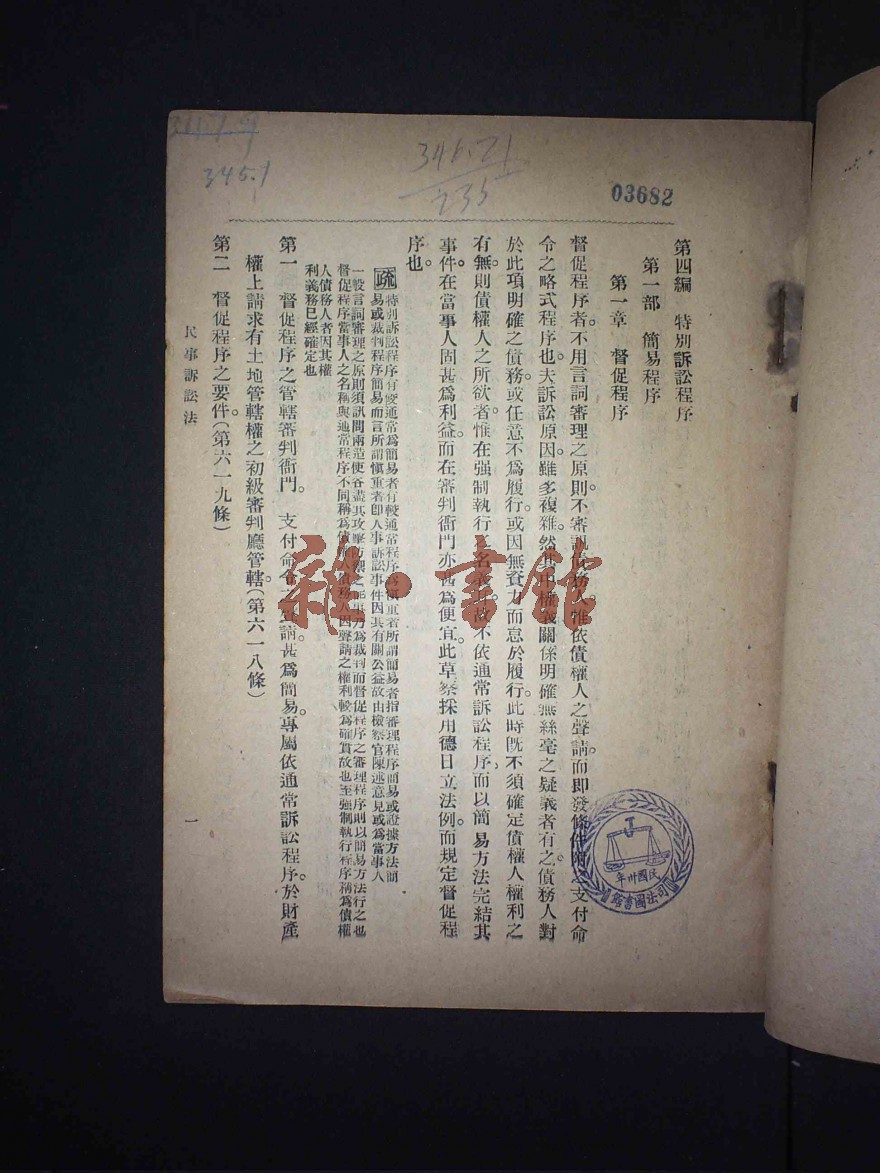 345.1
03682
第四編　特別訴訟程序
第一部　簡易程序
第一章　督促程序
督促程序者。不用言詞審理之原則。不審訊債務人。惟依債權人之聲請。而即發條件附之支付命
令之略式程序也。夫訴訟原因。雖多複雜。然其中權義關係明確。無絲毫之疑義者有之。債務人對
於此項明確之債務。或任意不爲履行。或因無資力而怠於履行。此時既不須確定債權人權利之
有無。則債權人之所欲者。惟在强制執行之名義。故不依通常訴訟程序。而以簡易方法完結其
事件。在當事人固甚爲利益。而在審判衙門亦甚爲便宜。此草案採用德日立法例。而規定督促程
序也。
疏
特別訴訟程序有較通常爲簡易者有較通常程序爲愼重者所謂簡易者指審理程序簡易或證據方法簡
易或裁判程序簡易而言所謂愼重者卽人事訴訟事件因其有關公益故由檢察官陳述意見或爲當事人
一般言詞審理之原則須訊問兩造使各盡其攻擊防禦之能事乃爲裁判而督促程序之審理程序則以簡易方法行之也
督促程序當事人之名稱與通常程序不同稱爲債權人債務人因聲請之權利較爲確實故也至强制執行程序稱爲債權
人債務人者因其權
利義務已經確定也
第一　督促程序之管轄審判衙門。　支付命令之聲請。甚爲簡易。專屬依通常訴訟程序。於財產
權上請求有土地管轄權之初級審判廳管轄。(第六一八條)
第二　督促程序之要件。(第六一九條)
民事訴訟法
一
雜·書館
民國卅年
司法圖書館